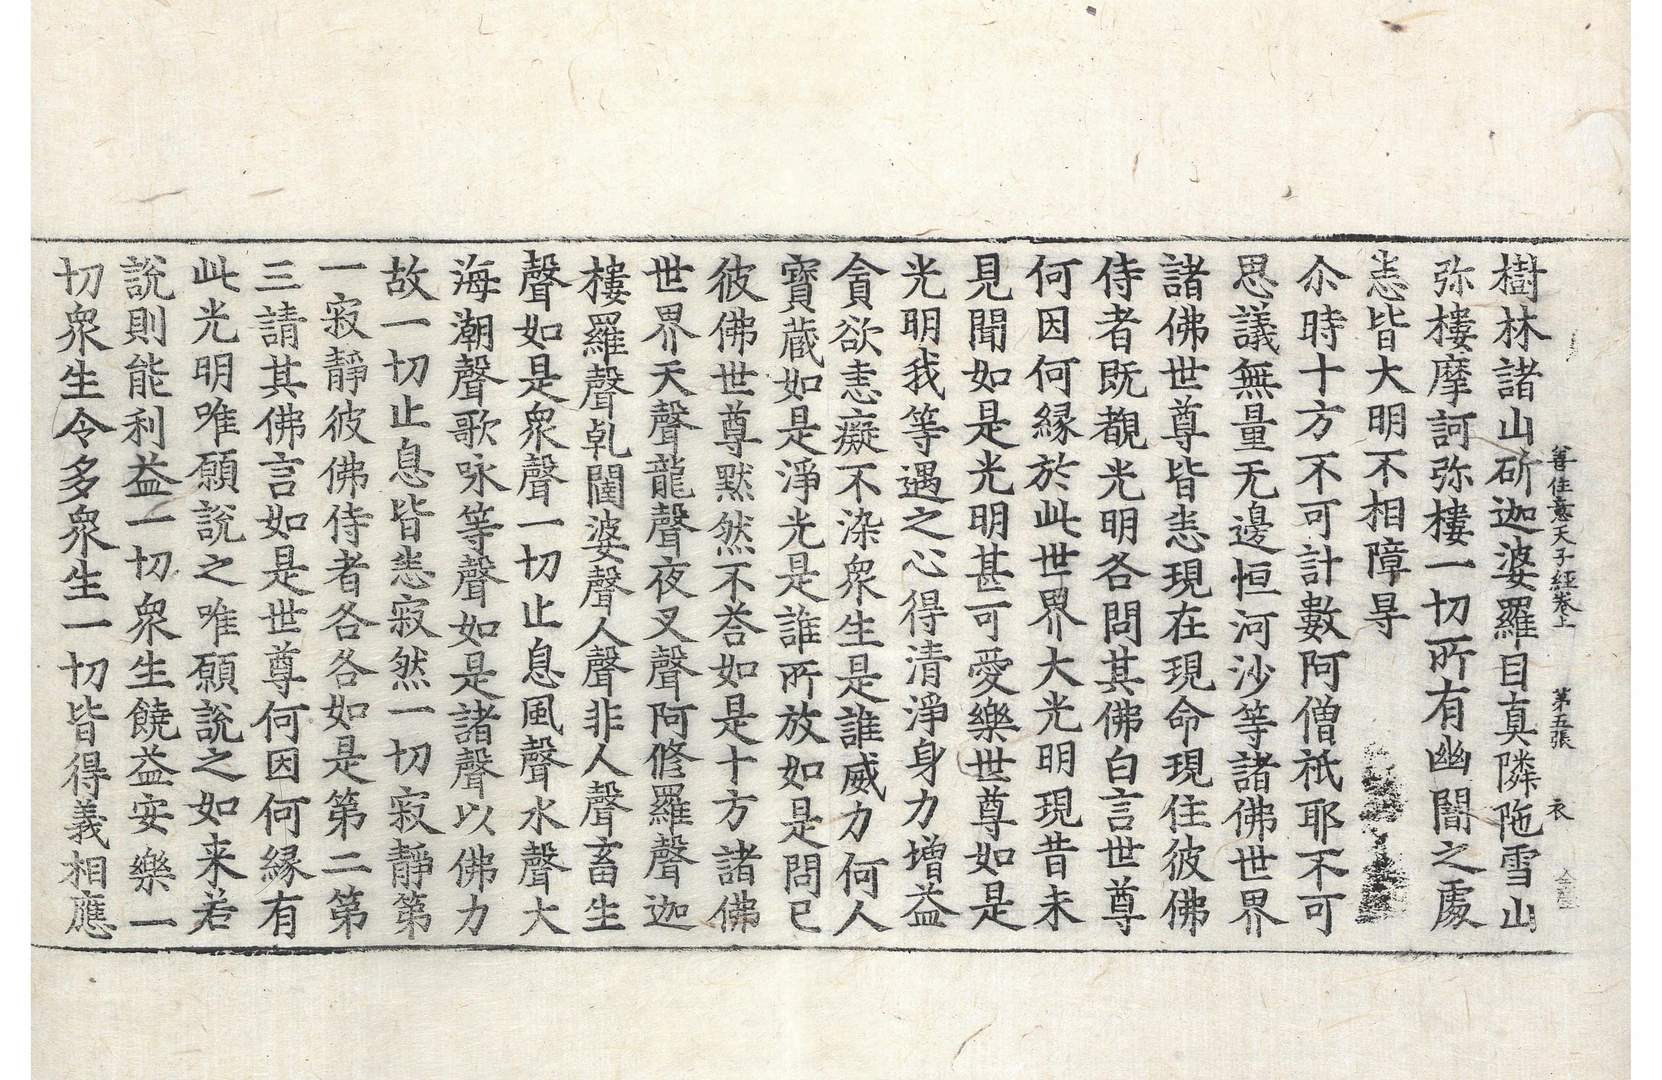 善住意天子經卷上　第五張　衣
樹林諸山斫迦婆羅目真隣陁雪山
弥樓摩訶弥樓一切所有幽闇之處
悉皆大明不相障㝵
尒時十方不可計數阿僧祇耶不可
思議無量无邊恒河沙等諸佛世界
諸佛世尊皆悉現在現命現住彼佛
侍者既覩光明各問其佛白言世尊
何因何縁於此世界大光明現昔未
見聞如是光明甚可愛樂世尊如是
光明我等遇之心得清淨身力增益
貪欲恚癡不染衆生是誰威力何人
寶蔵如是淨光是誰所放如是問已
彼佛世尊黙然不荅如是十方諸佛
世界天聲龍聲夜叉聲阿脩羅聲迦
樓羅聲乹闥婆聲人聲非人聲畜生
聲如是衆聲一切止息風聲水聲大
海潮聲歌咏等聲如是諸聲以佛力
故一切止息皆悉寂然一切寂靜第
一寂靜彼佛侍者各各如是第二第
三請其佛言如是世尊何因何縁有
此光明唯願說之唯願說之如来若
說則能利益一切衆生饒益安樂一
切衆生令多衆生一切皆得義相應